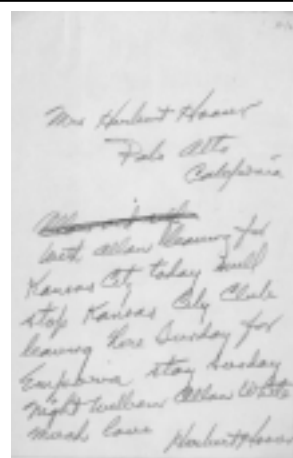 Mrs Herbert Hoover
Palo Alto
California
With Allan leaving for
Kansas City today will
stop Kansas City Club
leaving here Sunday for
Emporia stay Sunday
night William Allen White
much love Herbert Hoover